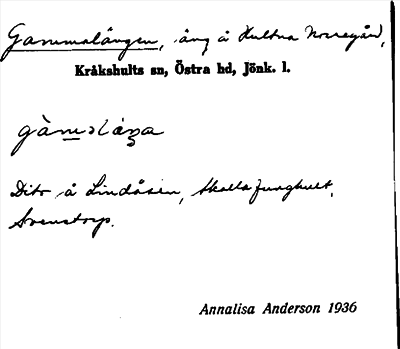 Gammalängen, äng å Hultna Norregård,
Kråkshults sn, Östra hd, Jönk. l.
Dito å Lindåsen, Skallajunghult,
Svenstorp.
Annalisa Anderson 1936